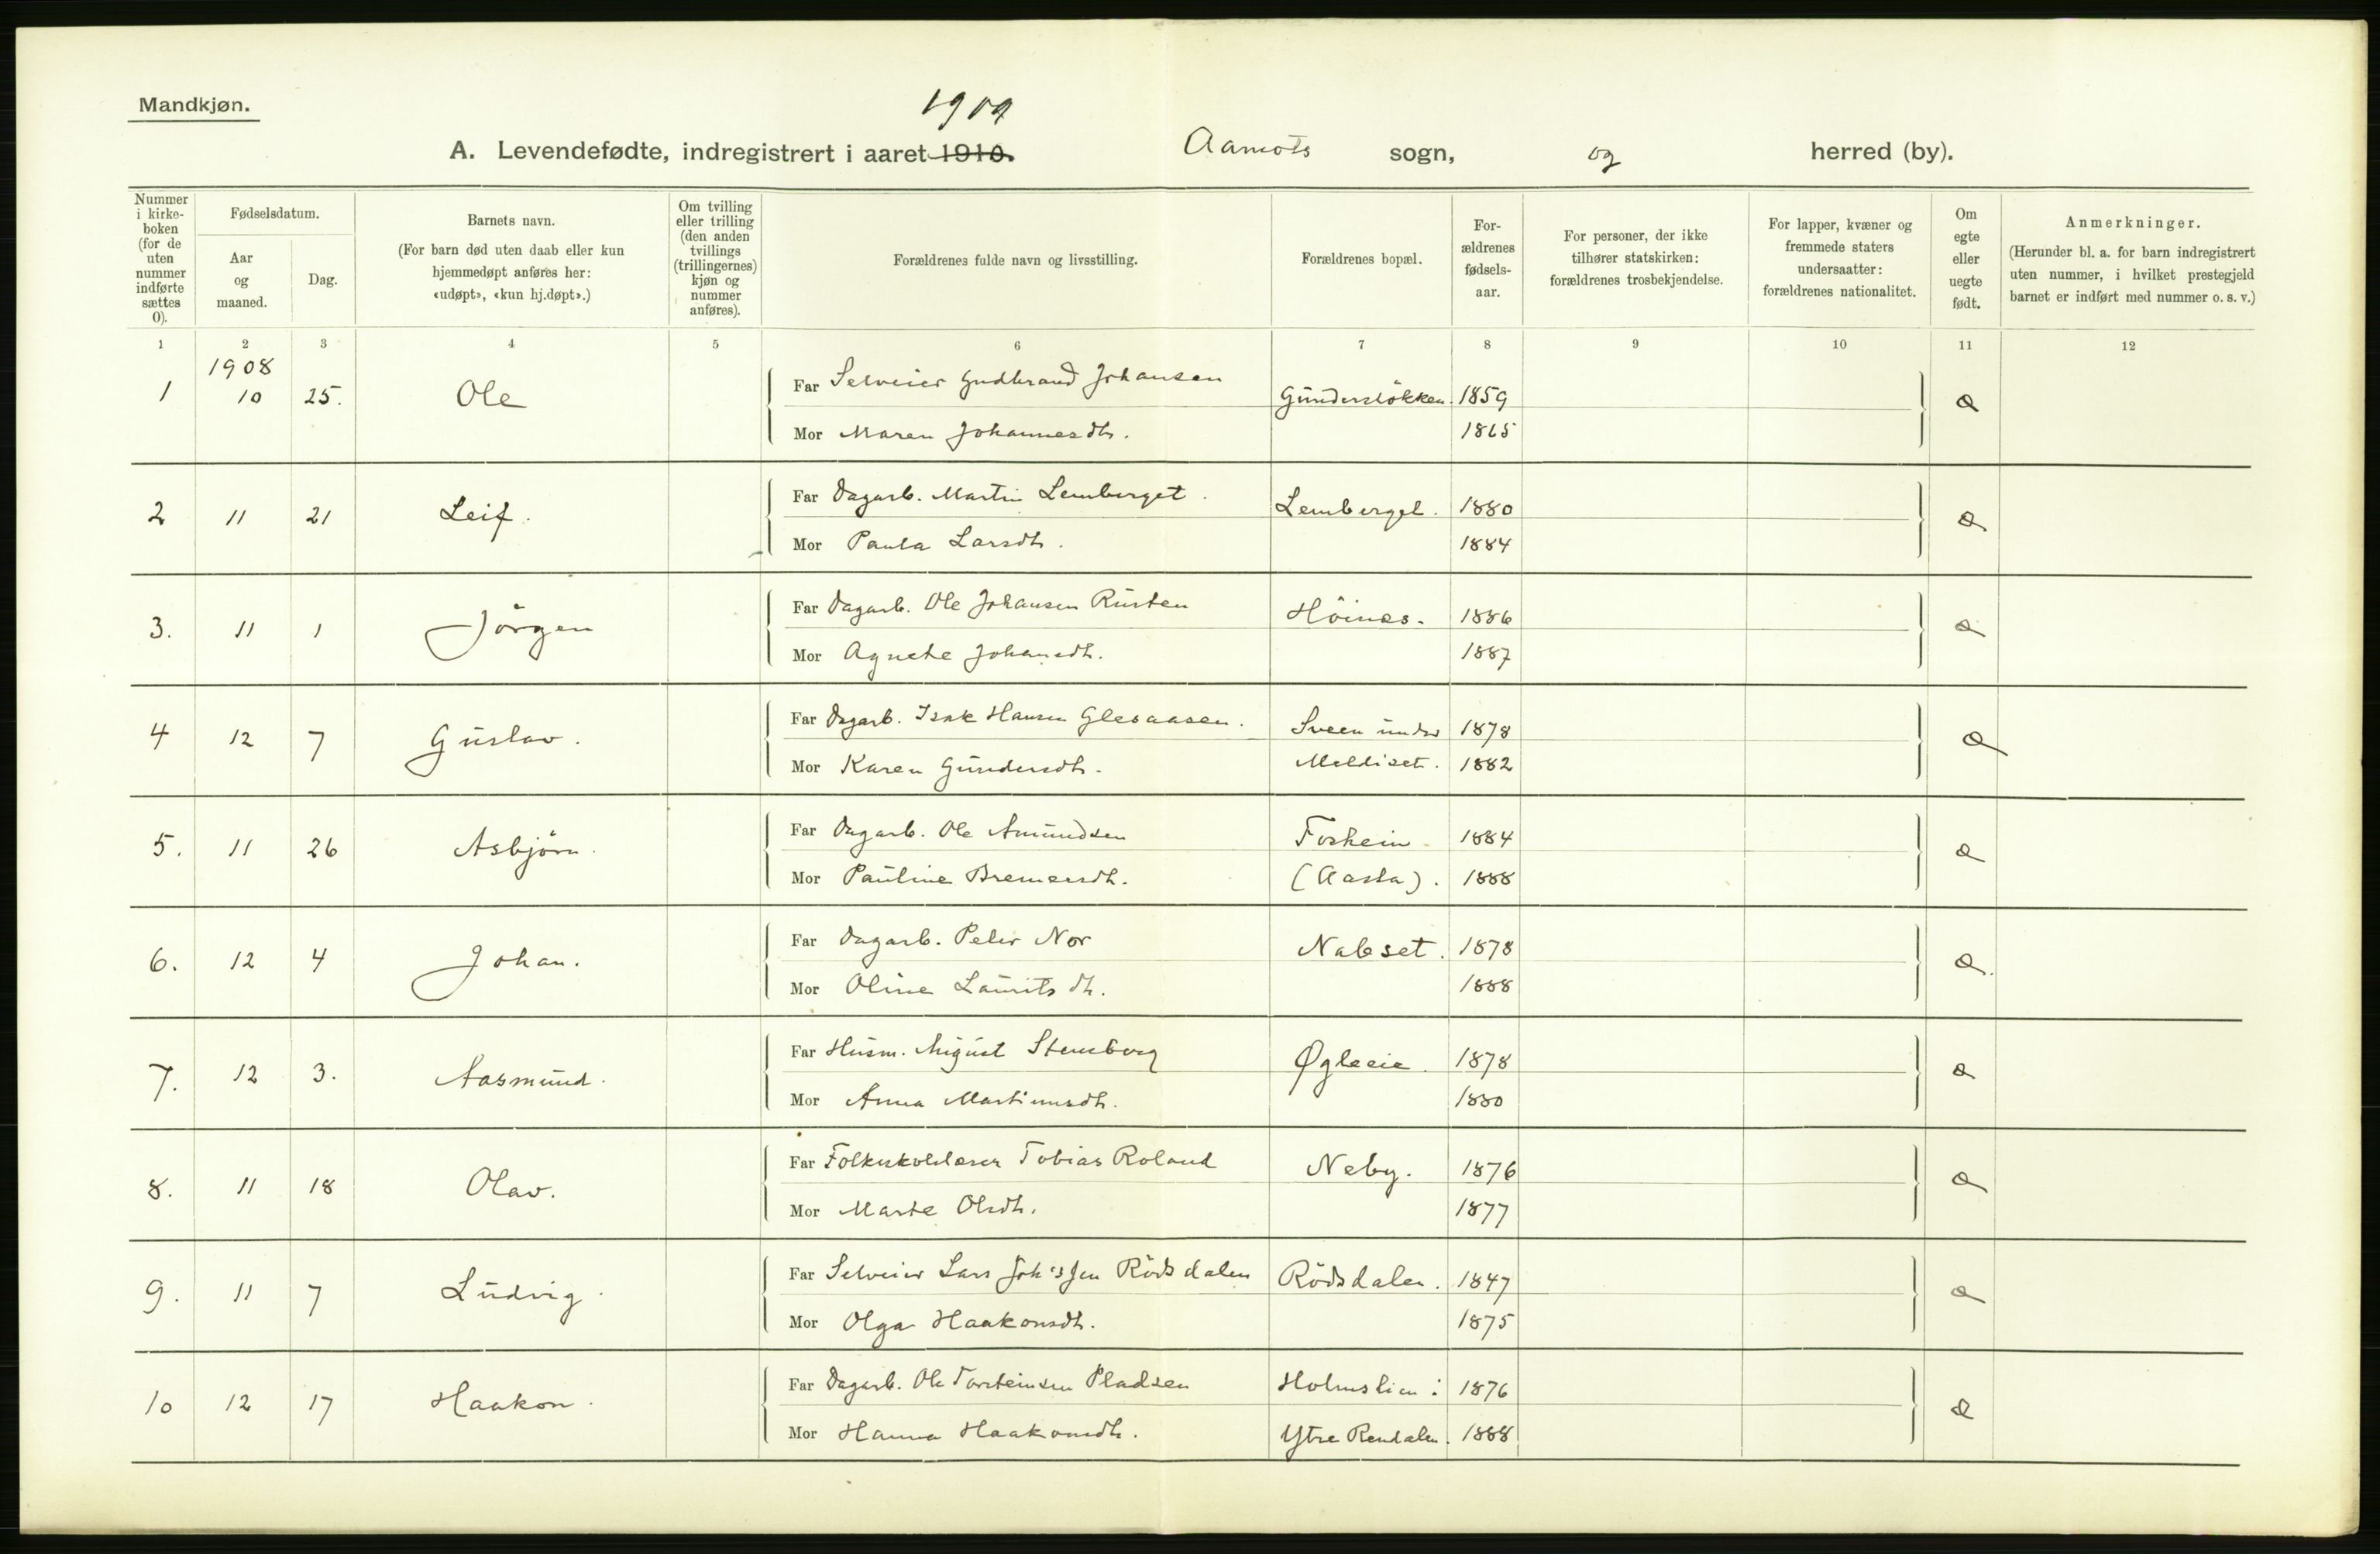 Mandkjøn.
1909
A. Levendefødte, indregistrert i aaret 1910. Aamots sogn, og herred (by).
Nummer i kirke-boken (for de uten nummer indførte sættes 0).
Fødselsdatum.
Aar og maaned.
Dag.
Barnets navn.
(For barn død uten daab eller kun hjemmedøpt anføres her: «udøpt», «kun hj.døpt».)
Om tvilling eller trilling (den anden tvillings (trillingernes) kjøn og nummer anføres).
Forældrenes fulde navn og livsstilling.
Forældrenes bopæl.
For-ældrenes fødsels-aar.
For personer, der ikke tilhører statskirken: forældrenes trosbekjendelse.
For lapper, kvæner og fremmede staters undersaatter: forældrenes nationalitet.
Om egte eller uegte født.
Anmerkninger.
(Herunder bl. a. for barn indregistrert uten nummer, i hvilket prestegjeld barnet er indført med nummer o. s. v.)
1 2 3 4 5 6 7 8 9 10 11 12
1908
1 10 25. Ole Far Selveier Gudbrand Johansen Gundersløkken. 1859
Mor Maren Johannesdtr. 1865
2 11 21 Leif. Far Dagarb. Martin Lemberget. Lemberget. 1880
Mor Paula Larsdtr. 1884
3. 11 1 Jörgen Far Dagarb. Ole Johansen Rusten Höines. 1886
Mor Agnete Johansdtr. 1887
4 12 7 Gustav. Far Dagarb. Isak Hansen Glesaasen. Sveen under 1878
Mor Karen Gundersdtr. Meldiset. 1882
5. 11 26 Asbjörn. Far Dagarb. Ole Amundsen Fosheim 1884
Mor Pauline Bremersdtr. (Aasta). 1888
6. 12 4 Johan. Far Dagarb. Peter Nor Nabset. 1878
Mor Oline Lauritsdtr. 1888
7. 12 3. Aasmund. Far Husm. August Stensborg Øgleeie. 1878
Mor Anna Martinusdtr. 1880
8. 11 18 Olav. Far Folkeskolelærer Tobias Roland Neby. 1876
Mor Marte Olsdtr. 1877
9. 11 7 Ludvig. Far Selveier Lars Joh'sen Rödsdalen Rödsdalen. 1847
Mor Olga Haakonsdtr. 1875
10 12 17 Haakon. Far Dagarb. Ole Torsteinsen Pladsen Holmslien i 1876
Mor Hanna Haakonsdtr. Ytre Rendalen. 1888